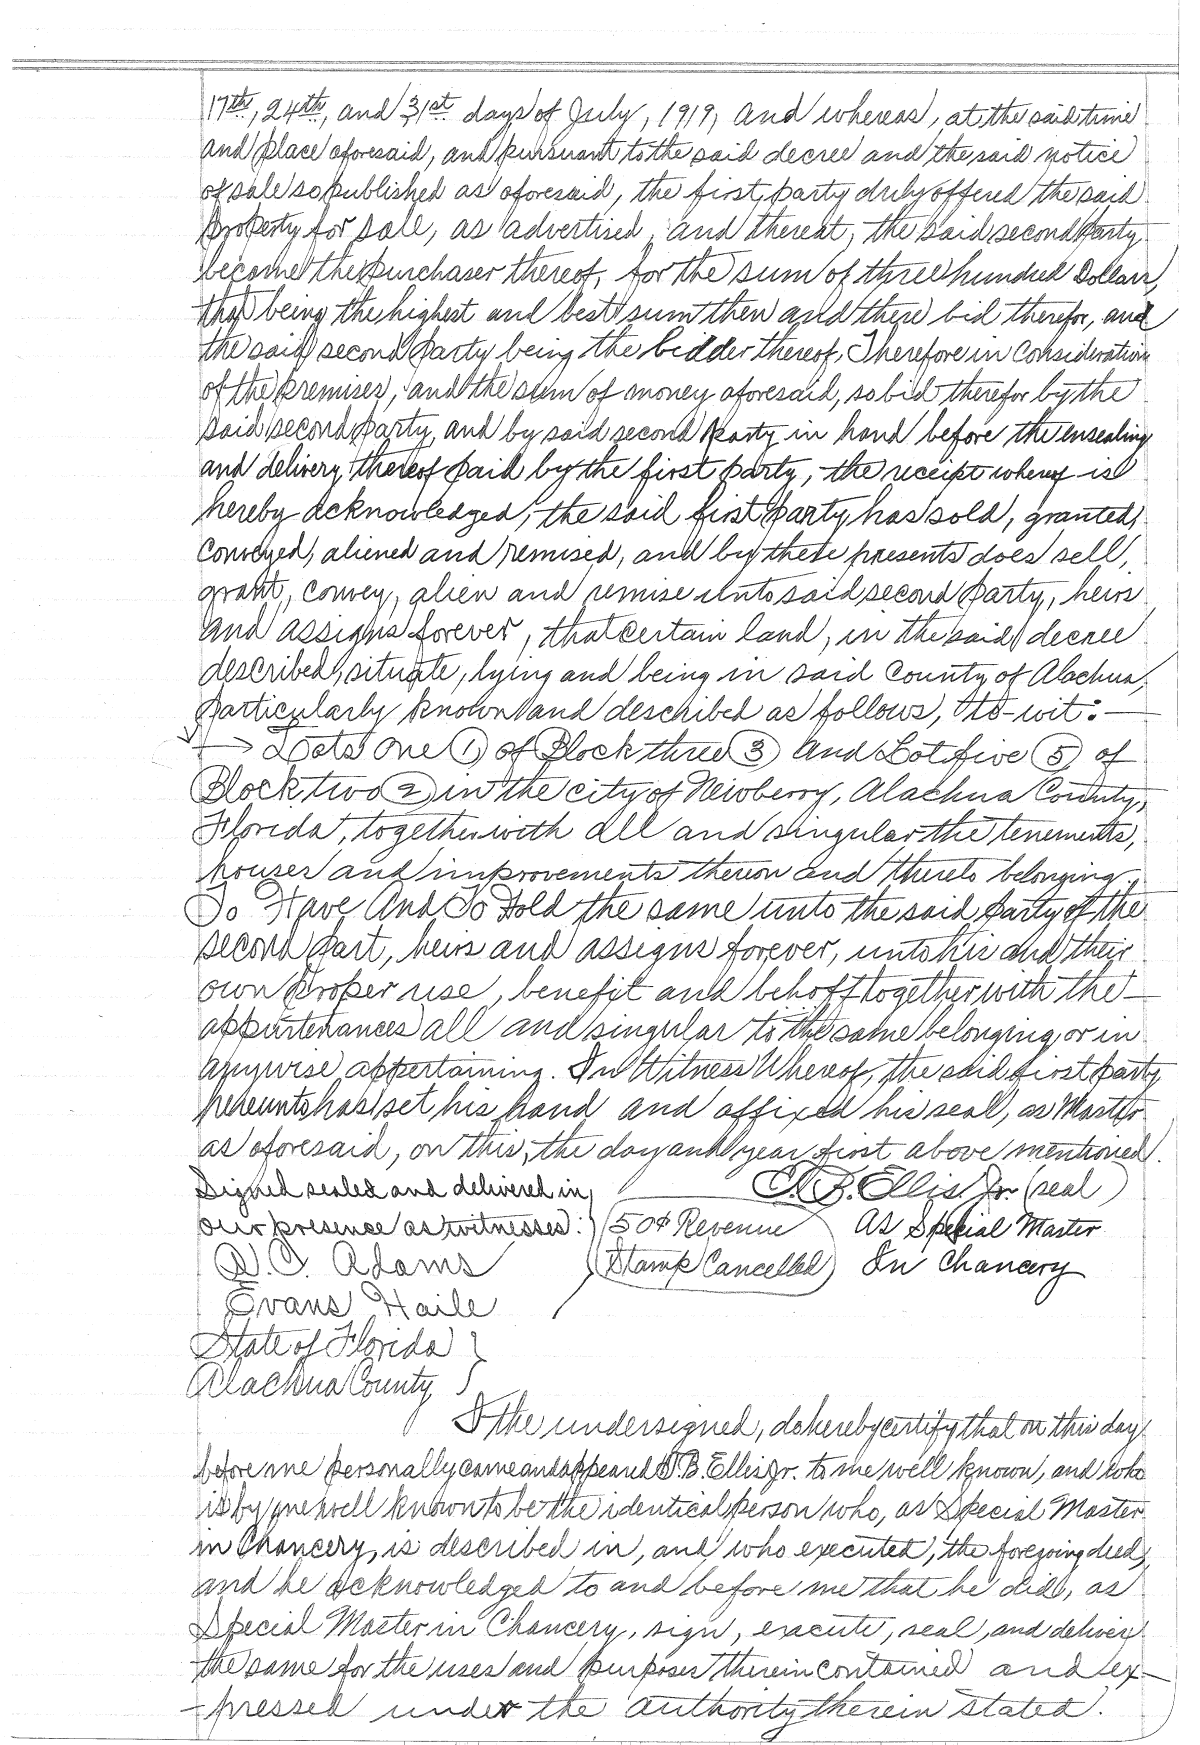 17th, 24th, and 31st days of July, 1919, and whereas, at the said time
and place aforesaid, and pursuant to the said decree and the said notice
of sale so published as aforesaid, the first party duly offered the said
property for sale, as advertised, and thereat, the said second party
became the purchaser thereof, for the sum of three hundred Dollars,
that being the highest and best sum then and there bid therefor, and
the said second party being the bidder thereof, Therefore in consideration
of the premises, and the sum of money aforesaid, so bid therefor by the
said second party, and by said second party in hand before the ensealing
and delivery thereof paid by the first party, the receipt whereof is
hereby acknowledged, the said first party has sold, granted,
conveyed, aliened and remised, and by these presents does sell,
grant, convey, alien and remise unto said second party, heirs
and assigns forever, that certain land, in the said decree
described, situate, lying and being in said County of Alachua,
particularly known and described as follows, to-wit:—
Lots One (1) of Block three (3) and Lot five (5) of
Block two (2) in the city of Newberry, Alachua County,
Florida, together with all and singular the tenements,
houses and improvements thereon and thereto belonging.
To Have And To Hold the same unto the said party of the
second part, heirs and assigns forever, unto his and their
own proper use, benefit and behoff together with the
appurtenances all and singular to the same belonging or in
anywise appertaining. In Witness Whereof, the said first party
hereunto has set his hand and affixed his seal, as Master
as aforesaid, on this, the day and year first above mentioned.
Signed sealed and delivered in
our presence as witnesses:
B. Ellis Jr. (seal)
50¢ Revenue As Special Master
Stamp Cancelled In Chancery
Adams
Evans Haile
State of Florida }
Alachua County }
I the undersigned, do hereby certify that on this day
before me personally came and appeared B. Ellis Jr. to me well known, and who
is by me well known to be the identical person who, as Special Master
in Chancery, is described in, and who executed, the foregoing deed,
and he acknowledged to and before me that he did, as
Special Master in Chancery, sign, execute, seal, and deliver
the same for the uses and purposes therein contained and ex-
-pressed under the authority therein stated.